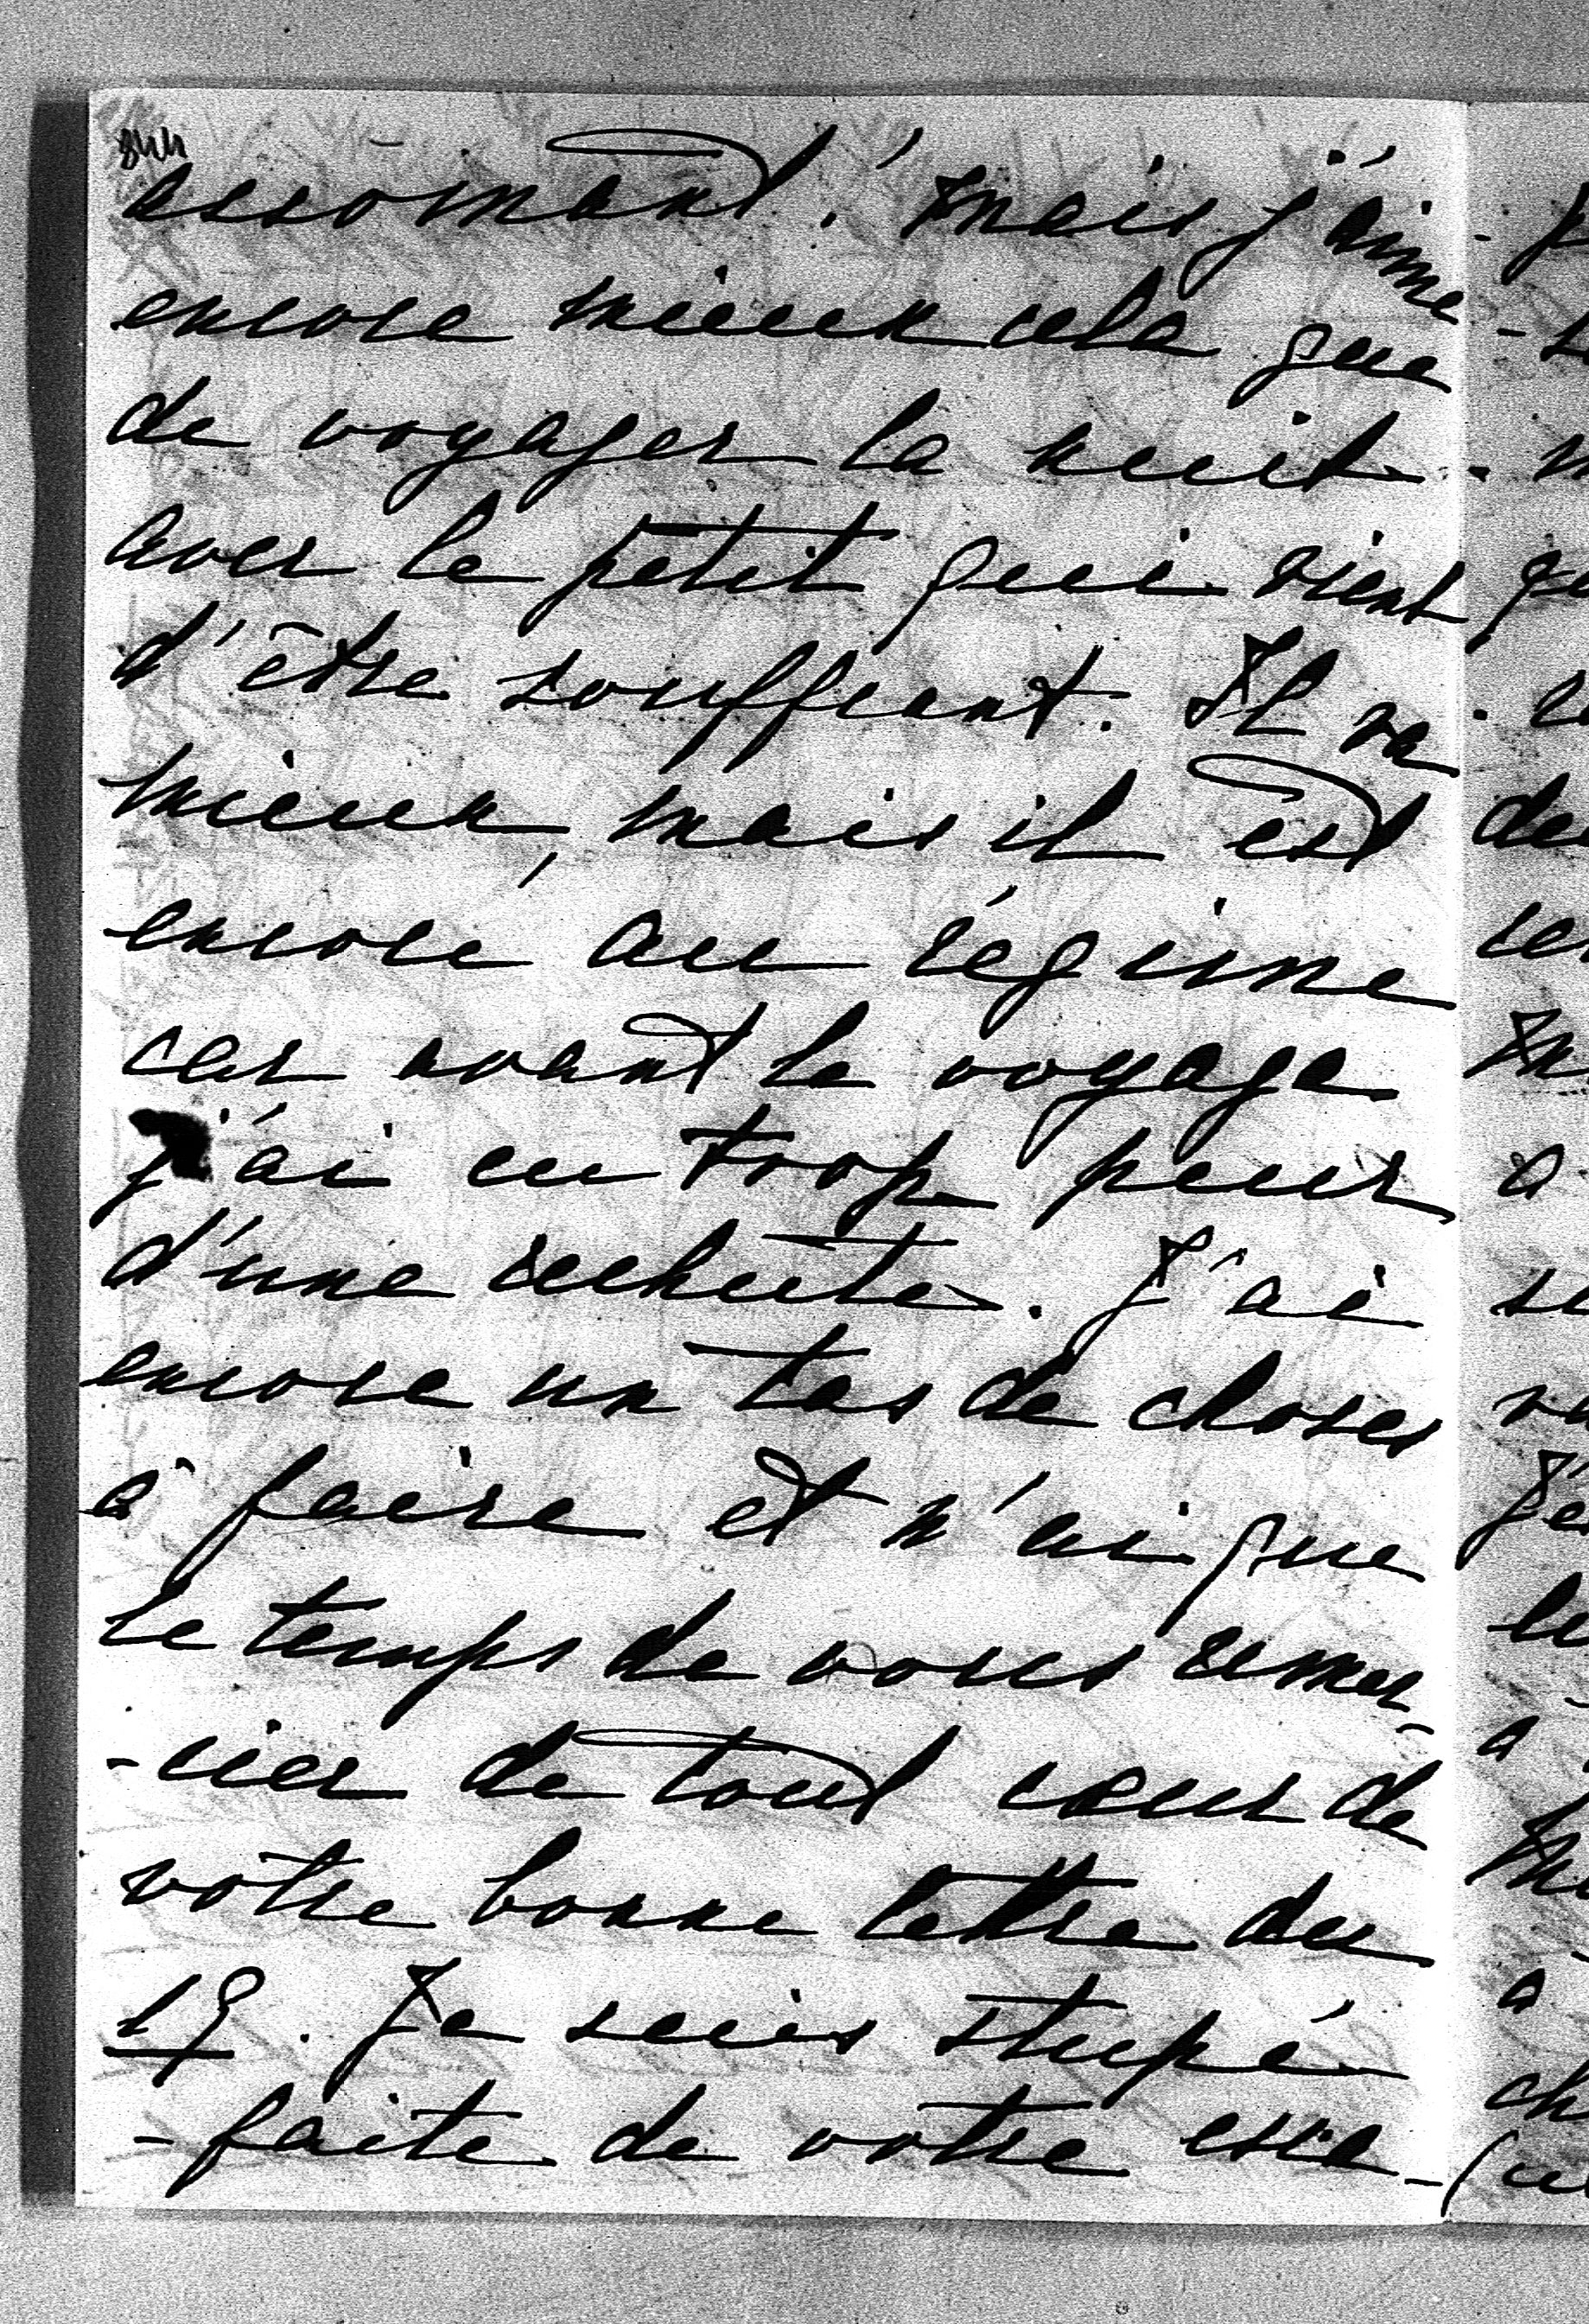 844
assomant! mais j'aime
encore mieux cela que
de voyager la nuit
avec le petit qui vient
d'être souffrant. Il va
mieux, mais il est
encore au régime
car avant le voyage
j'ai eu trop peur
d'une rechute. J'ai
encore un tas de choses
à faire et n'ai que
le temps de vous remer-
-cier de tout cœur de
votre bonne lettre du
19. Je suis stupé-
-faite de votre